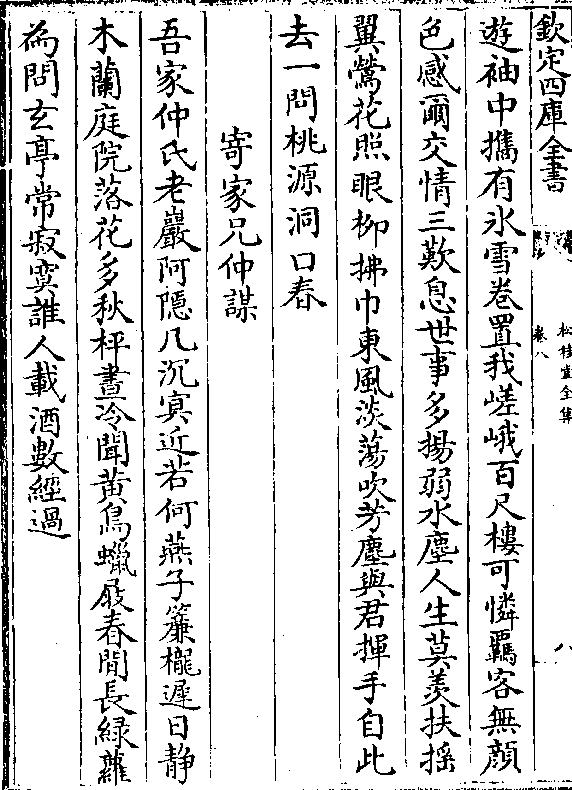 欽定四庫全書
松桂堂全集
卷八
八
遊袖中攜有氷雪卷置我嵯峨百尺樓可憐羈客無顔
色感爾交情三歎息世事多揚弱水塵人生莫羨扶揺
翼鶯花照眼栁拂巾東風淡蕩吹芳塵與君揮手自此
去一問桃源洞口春
寄家兄仲謀
吾家仲氏老巖阿隠几沉㝠近若何燕子簾櫳遲日静
木蘭庭院落花多秋枰晝冷聞黄鳥蠟屐春閒長緑蘿
為問玄亭常寂寞誰人載酒數經過